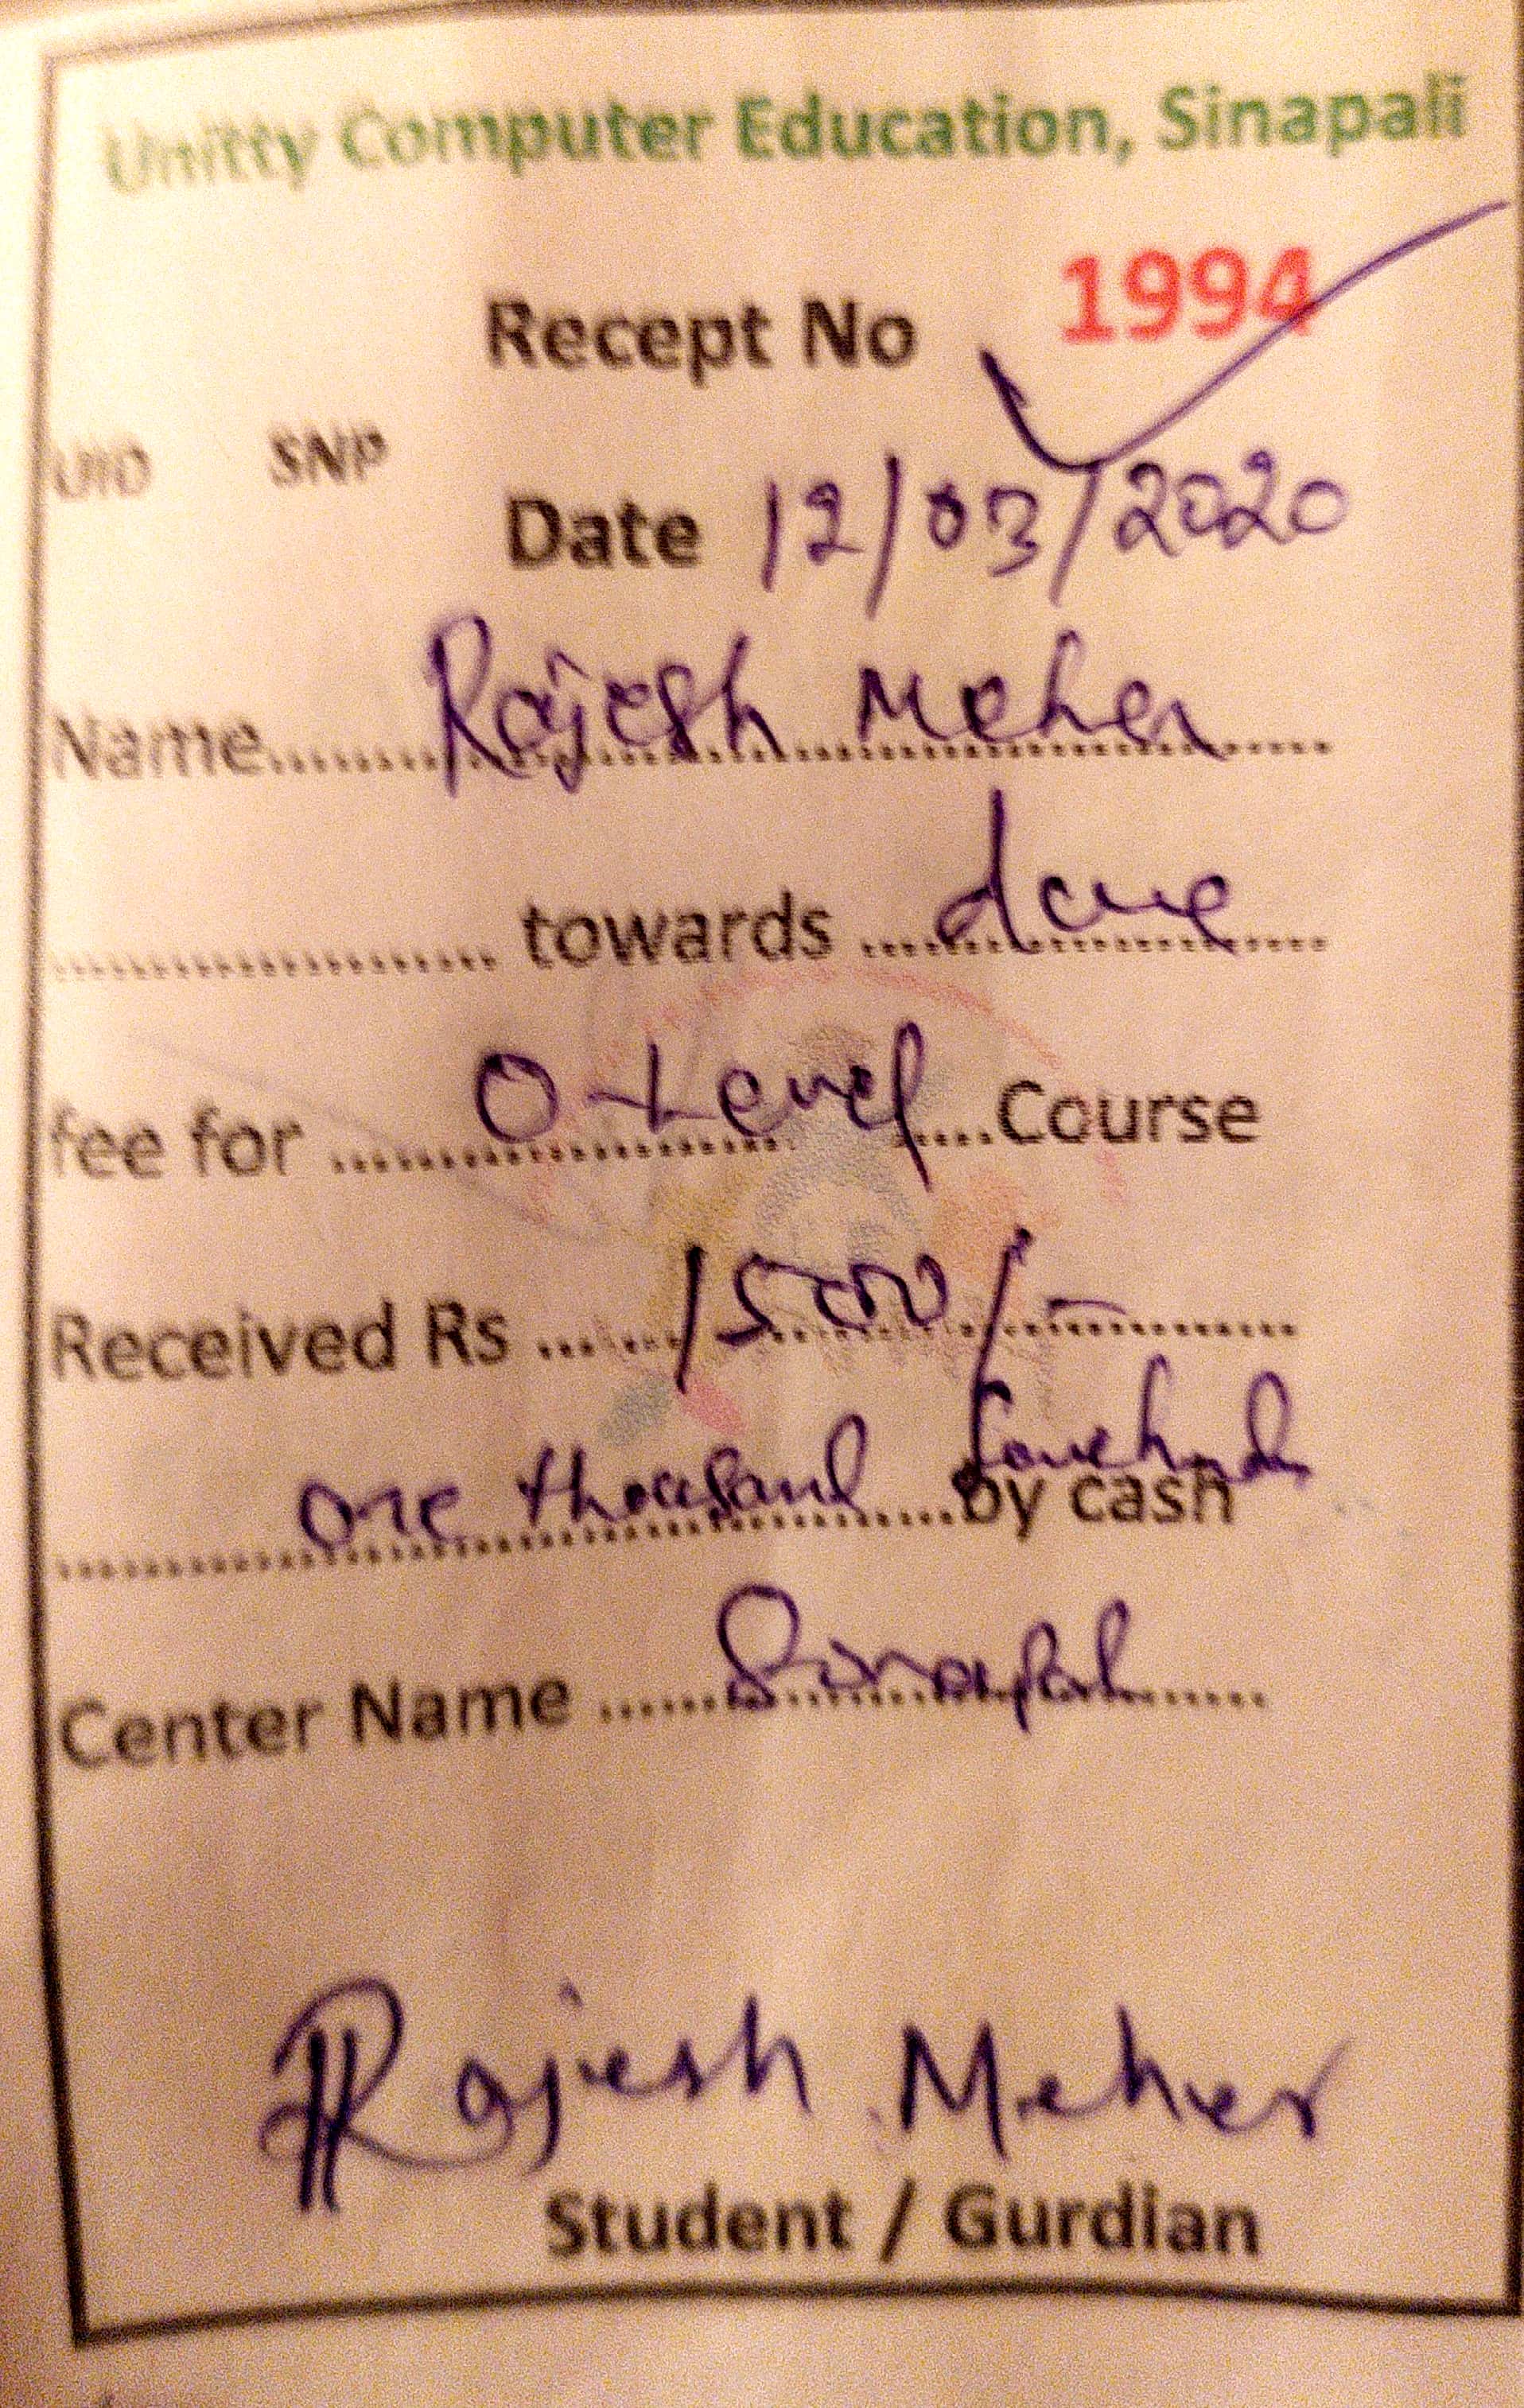 Unitty Computer Education, Sinapali
Recept No 1994
UID SNP
Date 12/03/2020
Name........Rajesh Meher.....
..................... towards ....
fee for .......O-Level....Course
Received Rs ......1500/-..........
one thousand ......by cash
Center Name ......Sinapali......
Rajesh Meher
Student / Gurdian